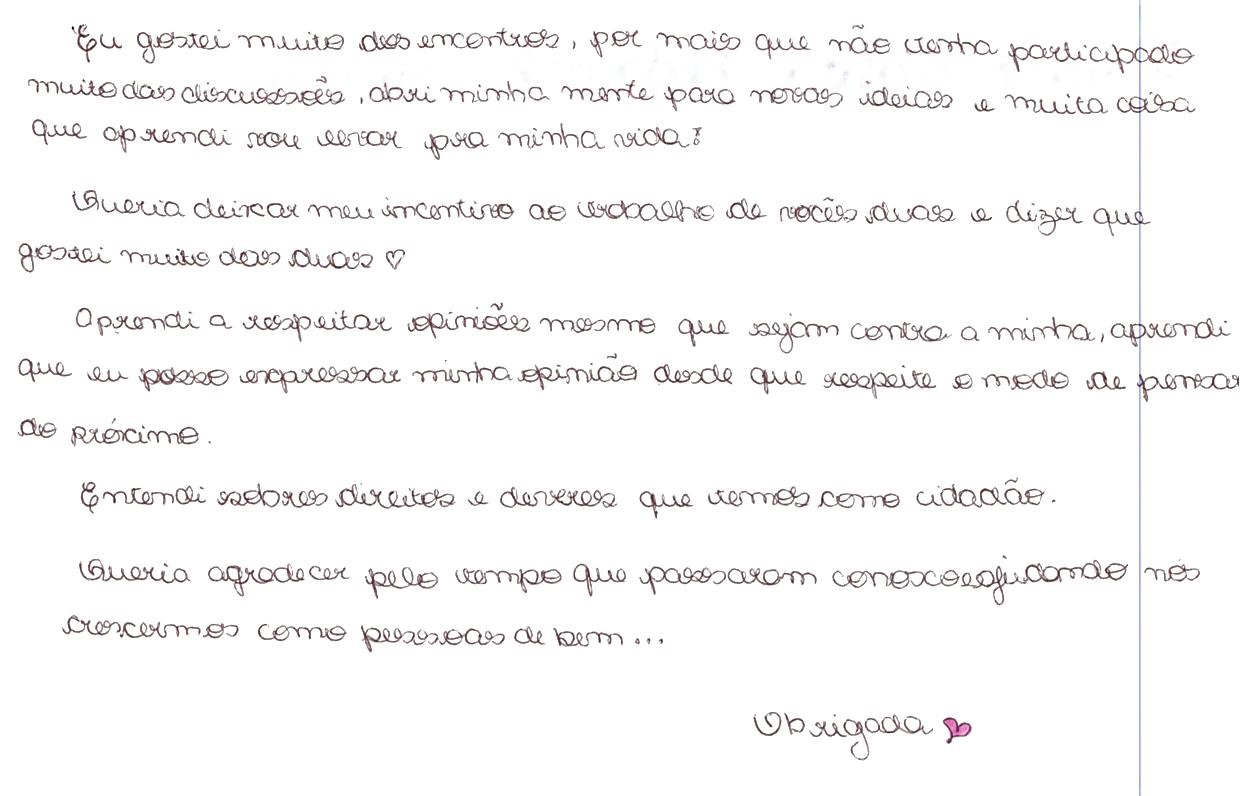 Eu gostei muito dos encontros, por mais que não tenha participado
muito das discussões, abri minha mente para novas ideias e muita coisa
que aprendi vou levar pra minha vida!
Queria deixar meu incentivo ao trabalho de vocês duas e dizer que
gostei muito das duas ♡
Aprendi a respeitar opiniões mesmo que sejam contra a minha, aprendi
que eu posso expressar minha opinião desde que respeite o modo de pensar
do próximo.
Entendi sobres direitos e deveres que temos como cidadão.
Queria agradecer pelo tempo que passaram conosco e ajudando nos
crescermos como pessoas de bem...
Obrigada ♥